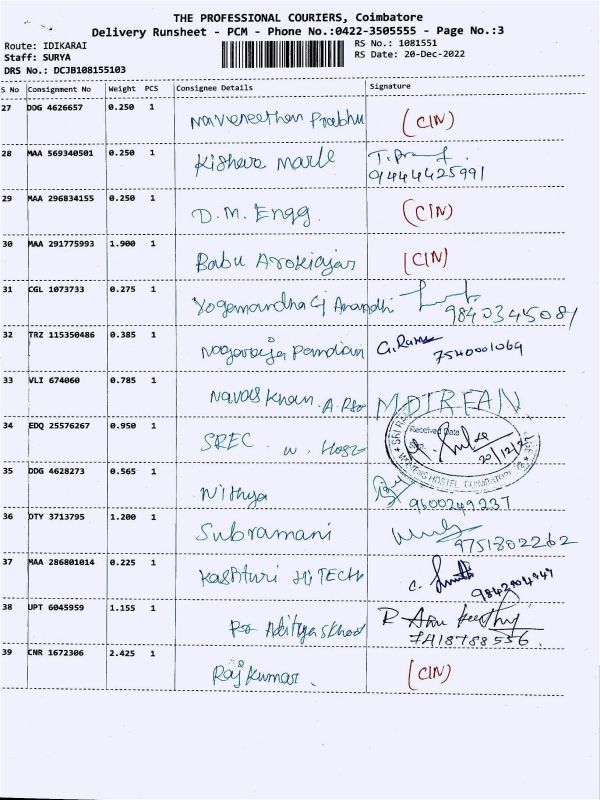 THE PROFESSIONAL COURIERS, Coimbatore
Delivery Runsheet - PCM - Phone No.:0422-3505555 - Page No.:3
Route: IDIKARAI
RS No.: 1081551
Staff: SURYA
RS Date: 20-Dec-2022
DRS No.: DCJB108155103
S No Consignment No Weight PCS Consignee Details Signature
27 DDG 4626657 0.250 1 Navaneethan Prabhu (CIN)
28 MAA 569340501 0.250 1 Kishore
9444425991
29 MAA 296834155 0.250 1 D.M. Engg. (CIN)
30 MAA 291775993 1.900 1 Babu Arokiajar (CIN)
31 CGL 1073733 0.275 1
9840345081
32 TRZ 115350486 0.385 1 Nagaraja Pandian
7540001069
33 VLI 674060 0.785 1 Navas Khan. MDIRFAN
34 EDQ 25576267 0.950 1 SREC. W. Host
Received Date
20/12/22
WOMENS HOSTEL COIMBATORE
35 DDG 4628273 0.565 1 Nithya
9600249237
36 DTY 3713795 1.200 1 Subramani
9751802262
37 MAA 286801014 0.225 1 Kasthuri HiTECH
38 UPT 6045959 1.155 1
7418788556.
39 CNR 1672306 2.425 1 Rajkumar. (CIN)